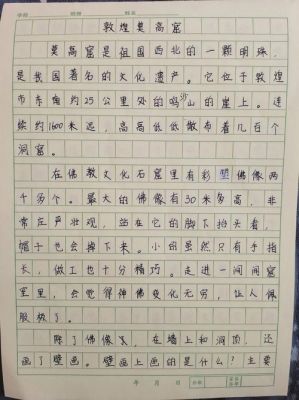 学校 班级 姓名
敦煌莫高窟
莫高窟是祖国西北的一颗明珠,
是我国著名的文化遗产。它位于敦煌
市东南约25公里处的鸣沙山的崖上。连
续约1600米远,高高低低散布着几百个
洞窟。
在佛教文化石窟里有彩塑佛像两
千多个。最大的佛像有30米多高,非
常庄严壮观,站在它的脚下抬头看,
帽子也会掉下来。小的虽然只有手指
长,做工也十分精巧。走进一间间窟
室里,会觉得神佛变化无穷,让人佩
服极了。
除了佛像,在墙上和洞顶,还
画了壁画。壁画上画的是什么?主要
年 月 日